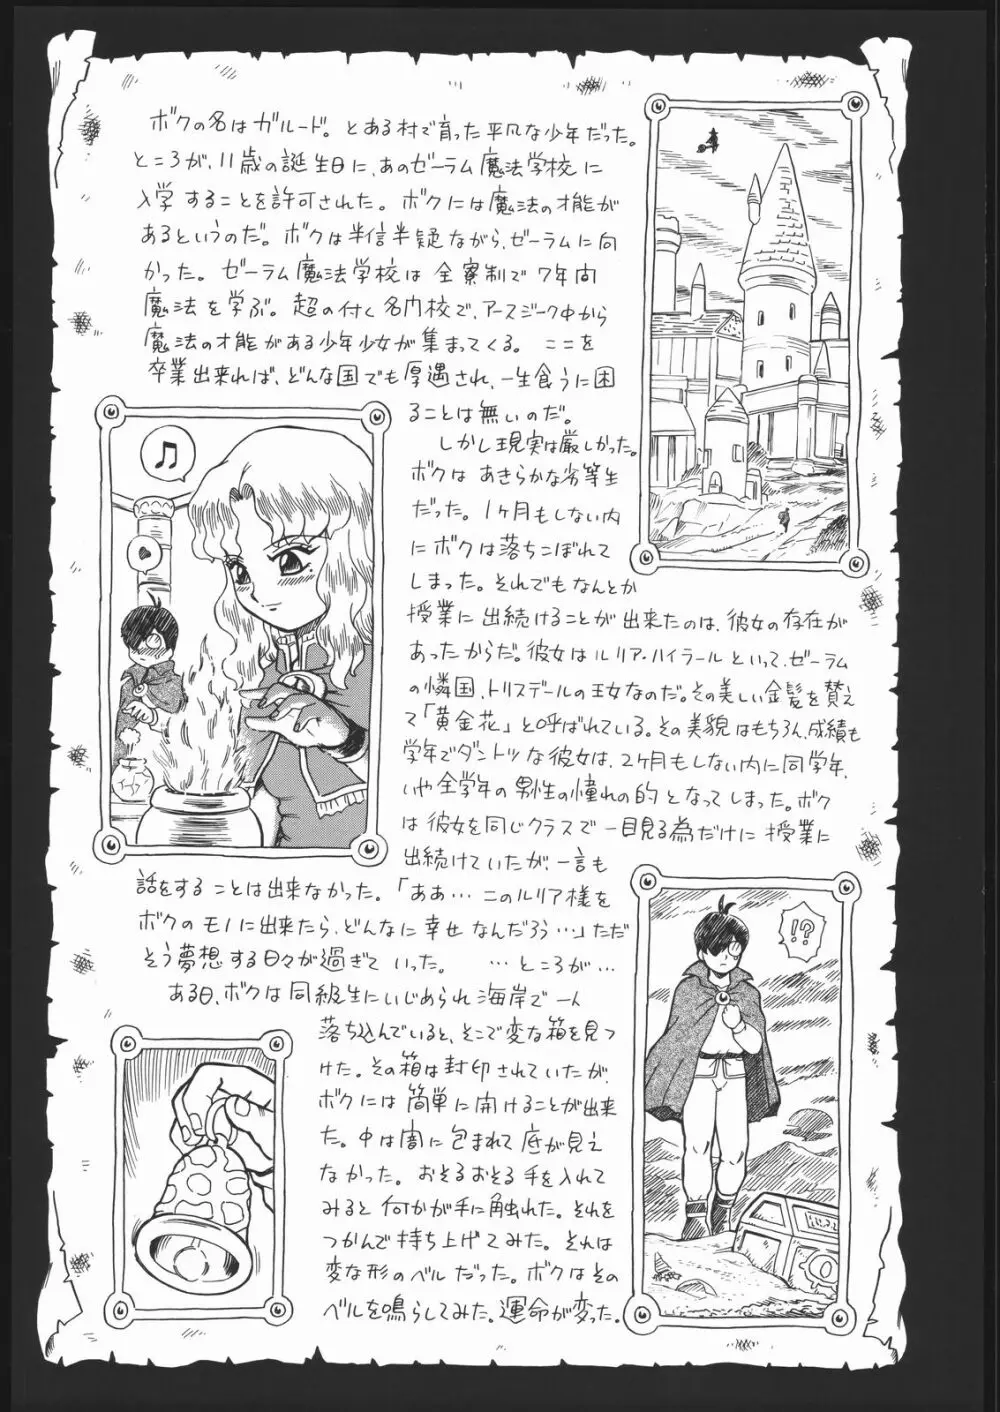 ボクの名はガルード。とある村で育った平凡な少年だった。
ところが、11歳の誕生日に、あのゼーラム魔法学校に
入学することを許可された。ボクには魔法の才能が
あるというのだ。ボクは半信半疑ながら、ゼーラムに向
かった。ゼーラム魔法学校は全寮制で7年間
魔法を学ぶ。超の付く名門校で、アースジーク中から
魔法の才能がある少年少女が集まってくる。ここを
卒業出来れば、どんな国でも厚遇され、一生食うに困
ることは無いのだ。
しかし現実は厳しかった。
ボクはあきらかな劣等生
だった。1ヶ月もしない内
にボクは落ちこぼれて
しまった。それでもなんとか
授業に出続けることが出来たのは、彼女の存在が
あったからだ。彼女はルリア・ハイラールといって、ゼーラム
の憐国、トリスデールの王女なのだ。その美しい金髪を賛え
て「黄金花」と呼ばれている。その美貌はもちろん、成績も
学年でダントツな彼女は、2ヶ月もしない内に同学年、
いや全学年の男性の憧れの的となってしまった。ボク
は彼女を同じクラスで一目見る為だけに授業に
出続けていたが、一言も
話をすることは出来なかった。「ああ…このルリア様を
ボクのモノに出来たら、どんなに幸せなんだろう…」ただ
そう夢想する日々が過ぎていった。…ところが…
ある日、ボクは同級生にいじめられ海岸で一人
落ち込んでいると、そこで変な箱を見つ
けた。その箱は封印されていたが、
ボクには簡単に開けることが出来
た。中は闇に包まれて底が見え
なかった。おそるおそる手を入れて
みると何かが手に触れた。それを
つかんで持ち上げてみた。それは
変な形のベルだった。ボクはその
ベルを鳴らしてみた。運命が変った。
!?